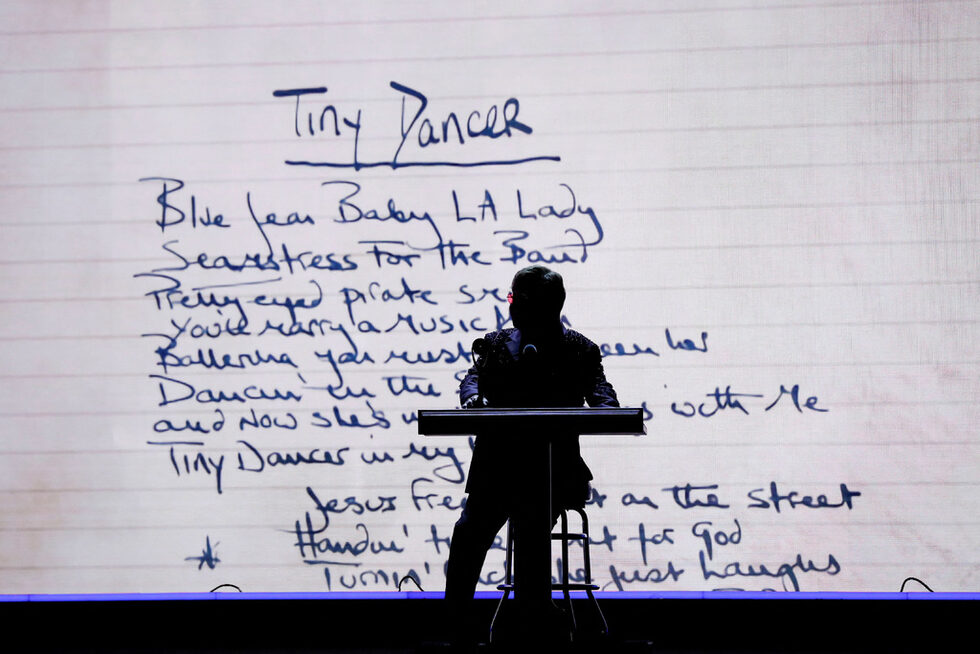 Tiny Dancer
Blue Jean Baby LA Lady
Seamstress For the Band
Pretty-eyed pirate
You'll marry a Music
Ballerina you must her
Dancin' in the
and now she's with Me
Tiny Dancer in my
Jesus on the street
Handin' for God
Turnin' she just laughs